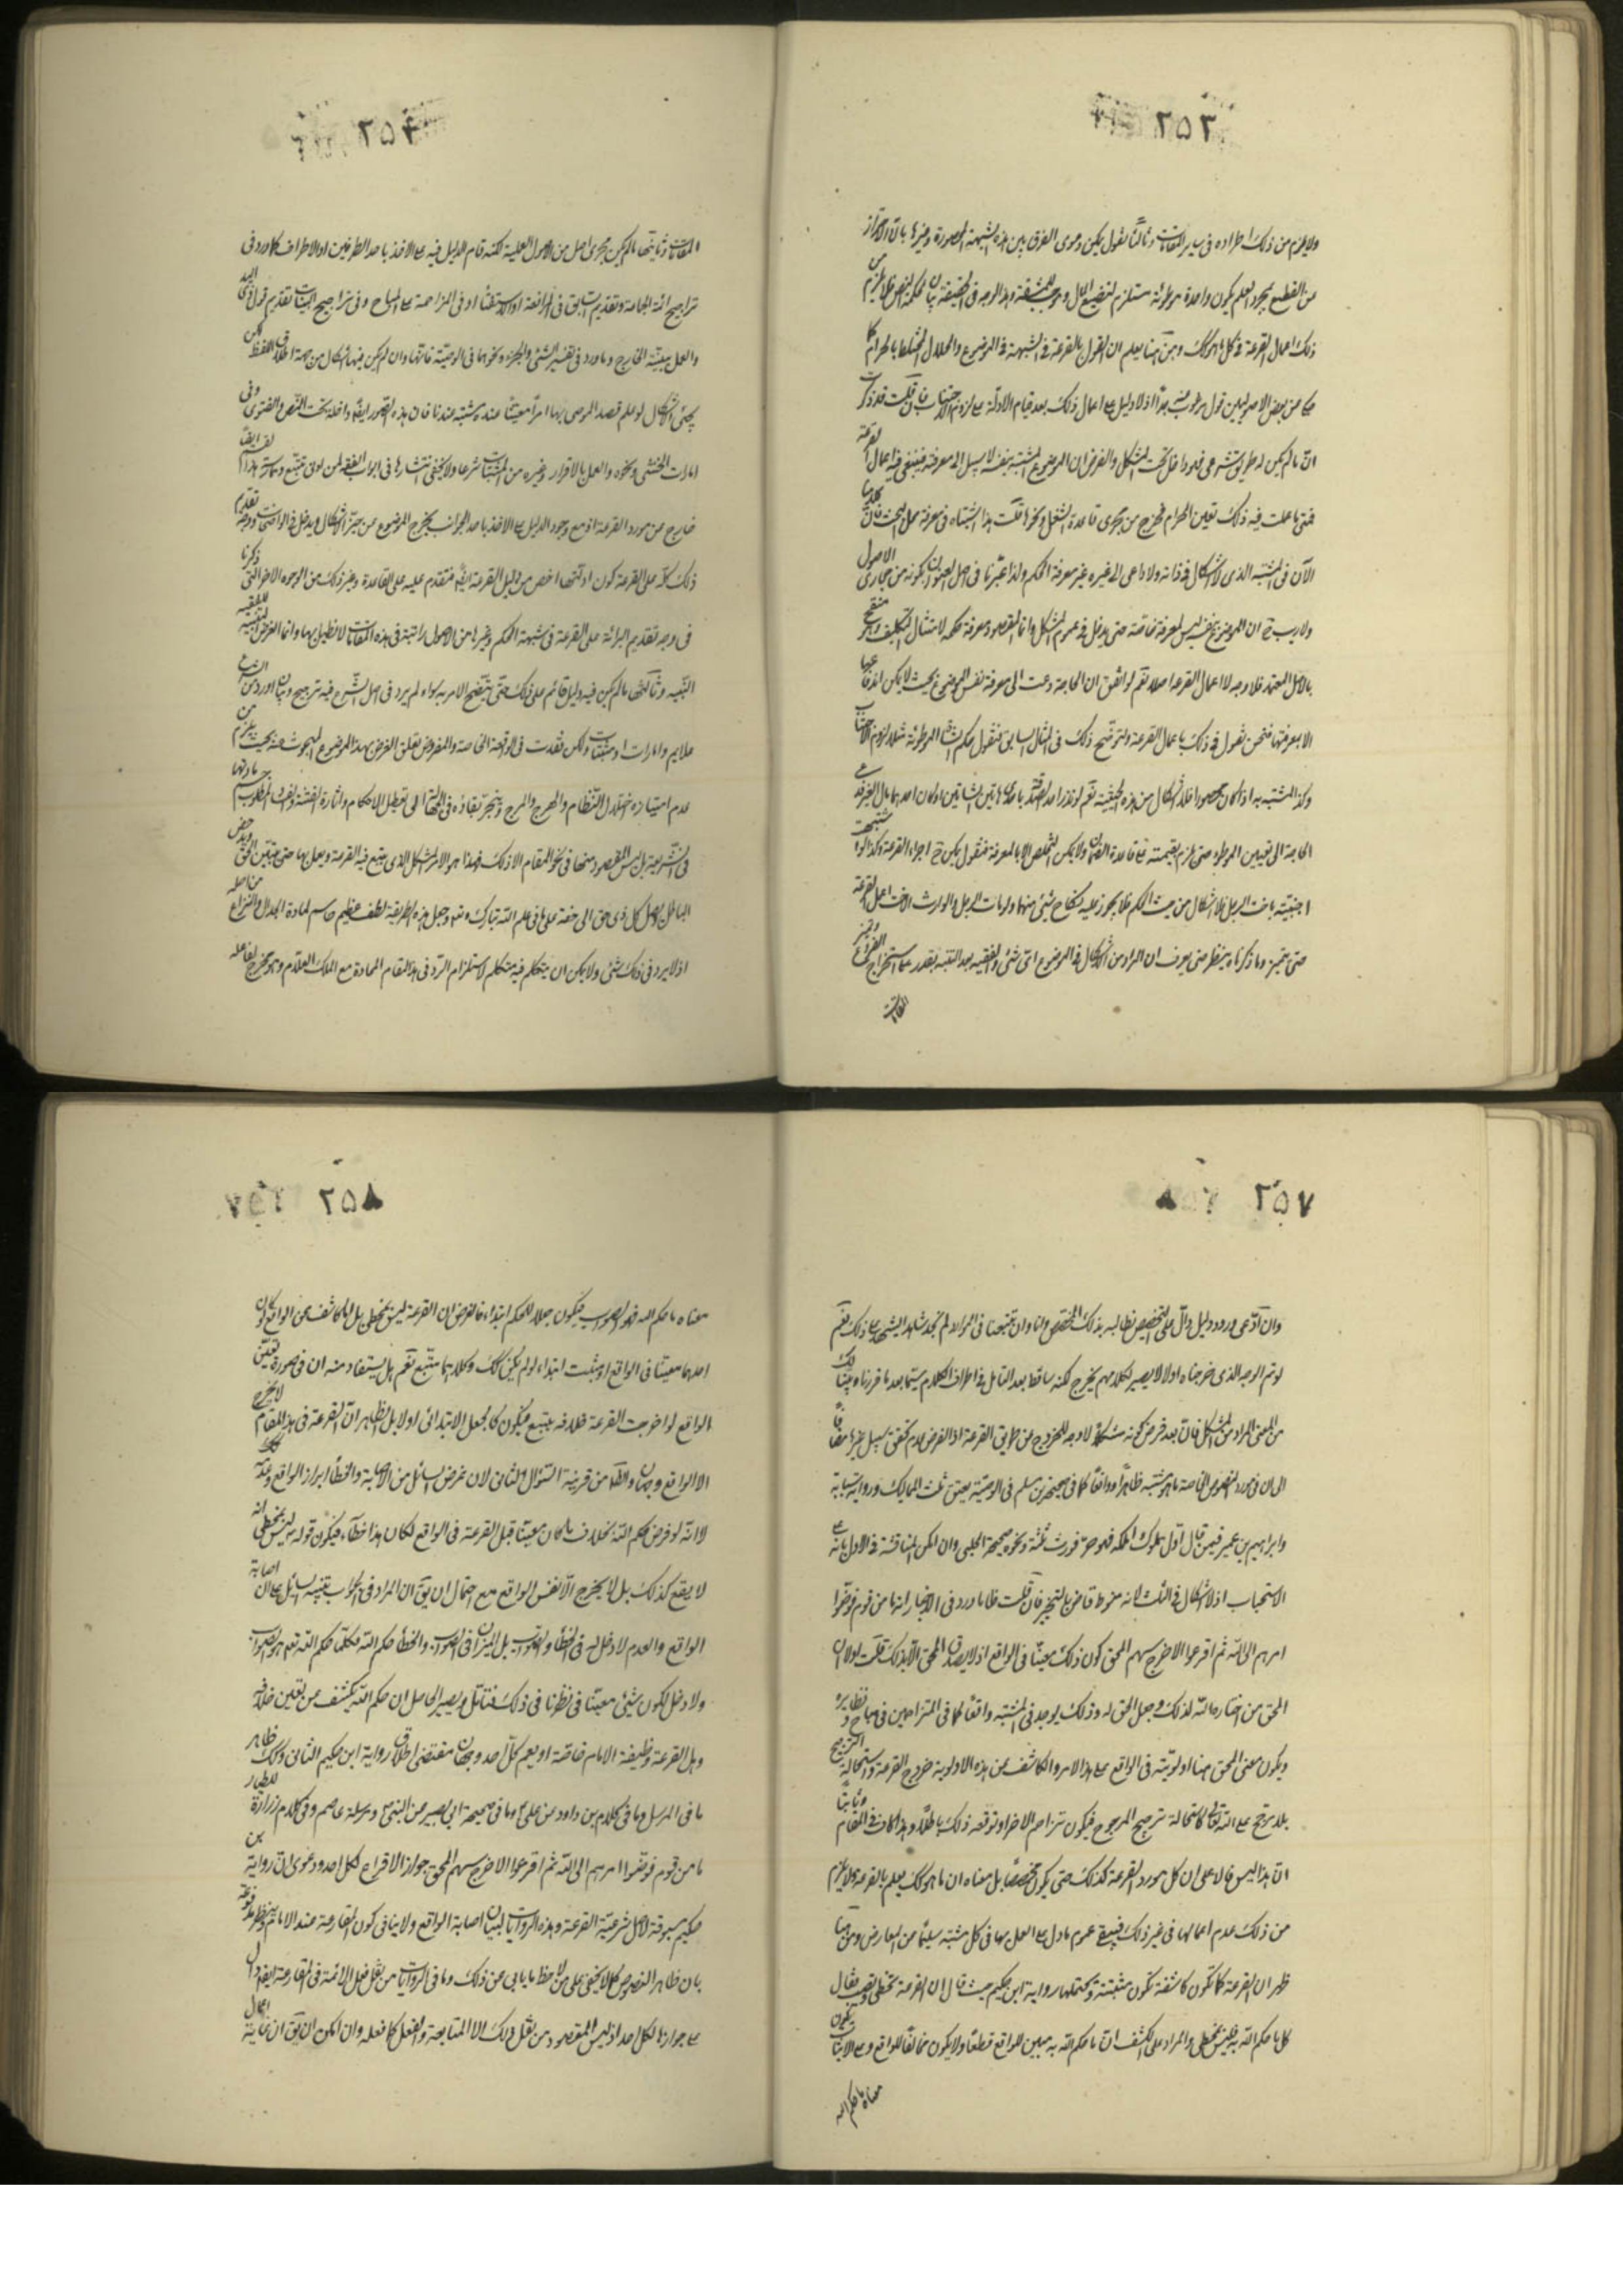 ٢٥٣
ولا يلزم من ذلك اطراده في ساير المقامات وثالثا نقول يمكن دعوى الفرق بين هذه الشبهة المحصورة وغيرها بان الاحتراز
من القطيع بمجرد العلم بكون واحدة موطوئة مستلزم لتضييع المال
ذلك اعمال القرعة في كل ما هو كك ومن هنا يعلم ان القول بالقرعة في الشبهة في الموضوع والحلال المختلط بالحرام كما
عن بعض الاصوليين قول مرغوب عنه جدا اذ لا دليل على اعمال ذلك بعد قيام الادلة على لزوم الاجتناب فان قلت قد ذكرت
ان ما لم يكن له طريق شرعي فهو داخل تحت المشكل والفرض ان الموضوع المشتبه بنفسه لا سبيل الى معرفته فينبغي فيه اعمال القرعة
فمتى ما عملت فيه ذلك تعين الحرام فخرج من مجرى قاعدة الشغل ونحوها قلت هذا اشتباه في معرفة محل البحث فان كلامنا
الآن في المشتبه الذي لا اشكال في ذاته ولا داعي الى غيره غير معرفة الحكم ولذا عبرنا في اصل العنوان بكونه من مجاري الاصول
ولا ريب ح ان الموضوع بنفسه ليس لمعرفته خاصة حتى يدخل في عموم المشكل وانما المقصود معرفة حكمه لامتثال التكليف
بالاصل المعتمد فلا وجه لاعمال القرعة اصلا نعم لو اتفق ان الحاجة دعت الى معرفة نفس الموضوع بحيث لا يمكن
الا بمعرفتها فنحن نقول في ذلك باعمال القرعة ولنوضح ذلك في المثال السابق فنقول حكم الشاة الموطوئة مثلا لزوم الاجتناب
وكذا المشتبه به اذا كان محصورا فلا اشكال من هذه الحيثية نعم لو نذر احد التصدق باحدى هاتين الشاتين او كان احدهما مال الغير
الحاجة الى تعيين الموطوء حتى يلزم بقيمته على قاعدة الضمان ولا يمكن التخلص الا بالمعرفة فنقول يمكن ح اجراء القرعة وكذا لو اشتبهت
اجنبية باخت الرجل فلا اشكال من حيث الحكم فلا يجوز عليه نكاح شيء منهما ولو مات الرجل والوارث الاخت اعمل القرعة
حتى يتميز وما ذكرناه ينظر حتى يعرف ان المراد من الاشكال في الموضوع اي شيء والفقيه بعد التنبه يقدر على استخراج الفروع
٢٥٤
المقامات وثانيها ما لم يكن مجرى اصل من الاصول العملية لكنه قام الدليل فيه على الاخذ باحد الطرفين او الاطراف كما ورد في
تراجيح ائمة الجماعة وتقديم السابق في المرافعة او الاستفتاء او في المزاحمة على المباح وفي تراجيح البينات بتقديم قول ذي اليد
والعمل ببينة الخارج وما ورد في تفسير الشيء والجزء ونحوهما في الوصية فانها وان لم يكن فيها اشكال من جهة اطلاق اللفظ لكن
يجيء الاشكال لو علم قصد الموصي بها امرا معينا عنده مشتبه عندنا فان هذه الصور ايضا داخلة تحت النص والفتوى وفي
امارات الخنثى ونحوه والعمل بالاقرار وغيره من المثبتات شرعا ولا يخفى انتشارها في ابواب الفقه لمن له تتبع وممارسة
خارج عن مورد القرعة اذ مع وجود الدليل على الاخذ باحد الجوانب يخرج الموضوع عن حيز الاشكال ويدخل في الواضحات ووجه تقديم
ذلك كله على القرعة كون ادلتها اخص من دليل القرعة ايضا فتقدم عليه على القاعدة وغير ذلك من الوجوه الاخر التي ذكرنا
في وجه تقديم البرائة على القرعة في شبهة الحكم وغيرها من الاصول المرتبة في هذه المقامات لا نطيل بها وانما الغرض
التنبيه وثالثها ما لم يكن فيه دليل قائم على ذلك حتى يتضح الامر به سواء لم يرد في اصل الشرع فيه ترجيح وبيان او ورد من الشرع
علايم وامارات او مثبتات ولكن فقدت في الواقعة الخاصة والمفروض تعلق الغرض بهذا الموضوع المبحوث عنه بحيث يلزم من
عدم امتيازه اختلال النظام والهرج والمرج وينجر بقاؤه في الجهالة الى تعطيل الاحكام واثارة الفتنة والفساد المطلوب حسم مادتها
في الشريعة بل ليس المقصود منها في نحو المقام الا ذلك فهذا هو الامر المشكل الذي يتبع فيه القرعة ويعمل بها حتى يتبين الحق ويدحض
الباطل ويصل كل ذي حق الى حقه على ما في علم الله تبارك وتعالى وجعل هذه الطريقة لطف عظيم حاسم لمادة الجدال والنزاع من اصله
اذ لا يرد في ذلك شيء ولا يمكن ان يتكلم فيه متكلم لاستلزام الرد في هذا المقام المحادة مع الملك العلام
٢٥٧
وان ادعى ورود دليل دال على التخصيص نطالبه بذلك المخصص وانا وان تتبعنا في الموارد لم نجد شاهدا يشهد على ذلك نعم
لو تم الوجه الذي خرجناه اولا لا يصير لكلامهم مخرج لكنه ساقط بعد التامل في اطراف الكلام سيما بعد ما قررناه وبينا لك
من المعنى المراد من المشكل فانه بعد فرض كونه مشكلا لا وجه للخروج عن طريق القرعة اذ الفرض عدم تحقق سبيل غيرها مضافا
الى ان في مورد النصوص الخاصة ما هو مشتبه ظاهرا وواقعا كما في صحيحة محمد بن مسلم في الوصية بعتق ثلث المماليك ورواية سيابة
وابراهيم بن عمير فيمن قال اول مملوك املكه فهو حر فورث ثلثة ونحوه صحيحة الحلبي وان امكن المناقشة في الاول بانه على
الاستحباب اذ لا اشكال في الثلث لانه منوط قاض بالتخيير فان قلت ظاهر ما ورد في الاخبار انه ما من قوم فوضوا
امرهم الى الله ثم اقرعوا الا خرج سهم المحق كون ذلك معينا في الواقع اذ لا يصدق المحق الا بذلك قلت اولا ان
المحق من اختاره الله لذلك وجعل الحق له وذلك يوجد في المشتبه واقعا كما في المتزاحمين في مباح ونظايره
ويكون معنى المحق هنا اولويته في الواقع على هذا الامر والكاشف عن هذه الاولوية خروج القرعة واستحالة الترجيح
بلا مرجح على الله تعالى كاستحالة ترجيح المرجوح فيكون تزاحم الاخر او توقعه ذلك باطلا وهذا كاف في المقام وثانيا
ان هذا ليس دالا على ان كل مورد القرعة كذلك حتى يكون مخصصا بل معناه ان ما هو كك يعلم بالقرعة ولا يلزم
من ذلك عدم اعمالها في غير ذلك فيبقى عموم ما دل على العمل بها في كل مشتبه سليما من المعارض ومن هنا
ظهر ان القرعة كما تكون كاشفة تكون مثبتة وتحتملها رواية ابن حكيم حيث قال ان القرعة تخطي وتصيب فقال
كل ما حكم الله به فليس بمخطي والمراد على الكشف ان ما حكم الله به مبين للواقع قطعا ولا يكون مخالفا للواقع وعلى الاثبات يكون
معناه ما حكم الله
٢٥٨
معناه ما حكم الله فهو الصواب فيكون جعلا للحكم ابتداء فالغرض ان القرعة ليس بمخطي بل اما كاشف عن الواقع لو كان
احدهما معينا في الواقع او مثبت ابتداء لو لم يكن كك وكلاهما متبع نعم بل يستفاد منه ان في صورة تعين
الواقع لو اخرجت القرعة خلافه يتبع فيكون كالجعل الابتدائي اولا بل الظاهر ان القرعة في هذا المقام لا يخرج
الا الواقع وجهان والظاهر من قرينة السؤال الثاني لان غرض السائل من الاصابة والخطأ ابراز الواقع وعدمه
لا انه لو فرض حكم الله بخلاف ما كان معينا قبل القرعة في الواقع لكان هذا خطآ، فيكون قوله ليس بمخطي انه
لا يقع كذلك بل لا يخرج الا نفس الواقع مع احتمال ان يق ان المراد في الجواب تنبيه السائل على ان اصابة
الواقع والعدم لا دخل له في الخطأ والصواب بل الميزان في الصواب والخطأ حكم الله فكلما حكم الله تعالى هو الصواب
ولا دخل لكون شيء معينا في نظرنا في ذلك فتامل ويصير الحاصل ان حكم الله يكشف عن تعين خلافه
وهل القرعة وظيفة الامام خاصة او يعم كل احد وجهان مقتضى اطلاق رواية ابن حكيم الثاني وكك ظاهر
ما في المرسل وما في كلام بن داود عن علي ع وما في صحيحة ابي بصير عن النبي ص ومرسلة عاصم وفي كلام زرارة للطيار
ما من قوم فوضوا امرهم الى الله ثم اقرعوا الا خرج سهم المحق جواز الاقراع لكل احد ودعوى ان رواية بن
حكيم مسوقة لاصل شرعية القرعة وهذه الروايات لبيان اصابة الواقع ولا ينافي كون المقارعة عند الامام
بان ظاهر النصوص كما لا يخفى على من لاحظها يابى عن ذلك وما في الروايات من نقل فعل الائمة في المقارعة ايضا دال
على جوازها لكل احد اذ ليس المقصود من نقل ذلك الا المتابعة والفعل كما فعله وان امكن ان يق ان غاية